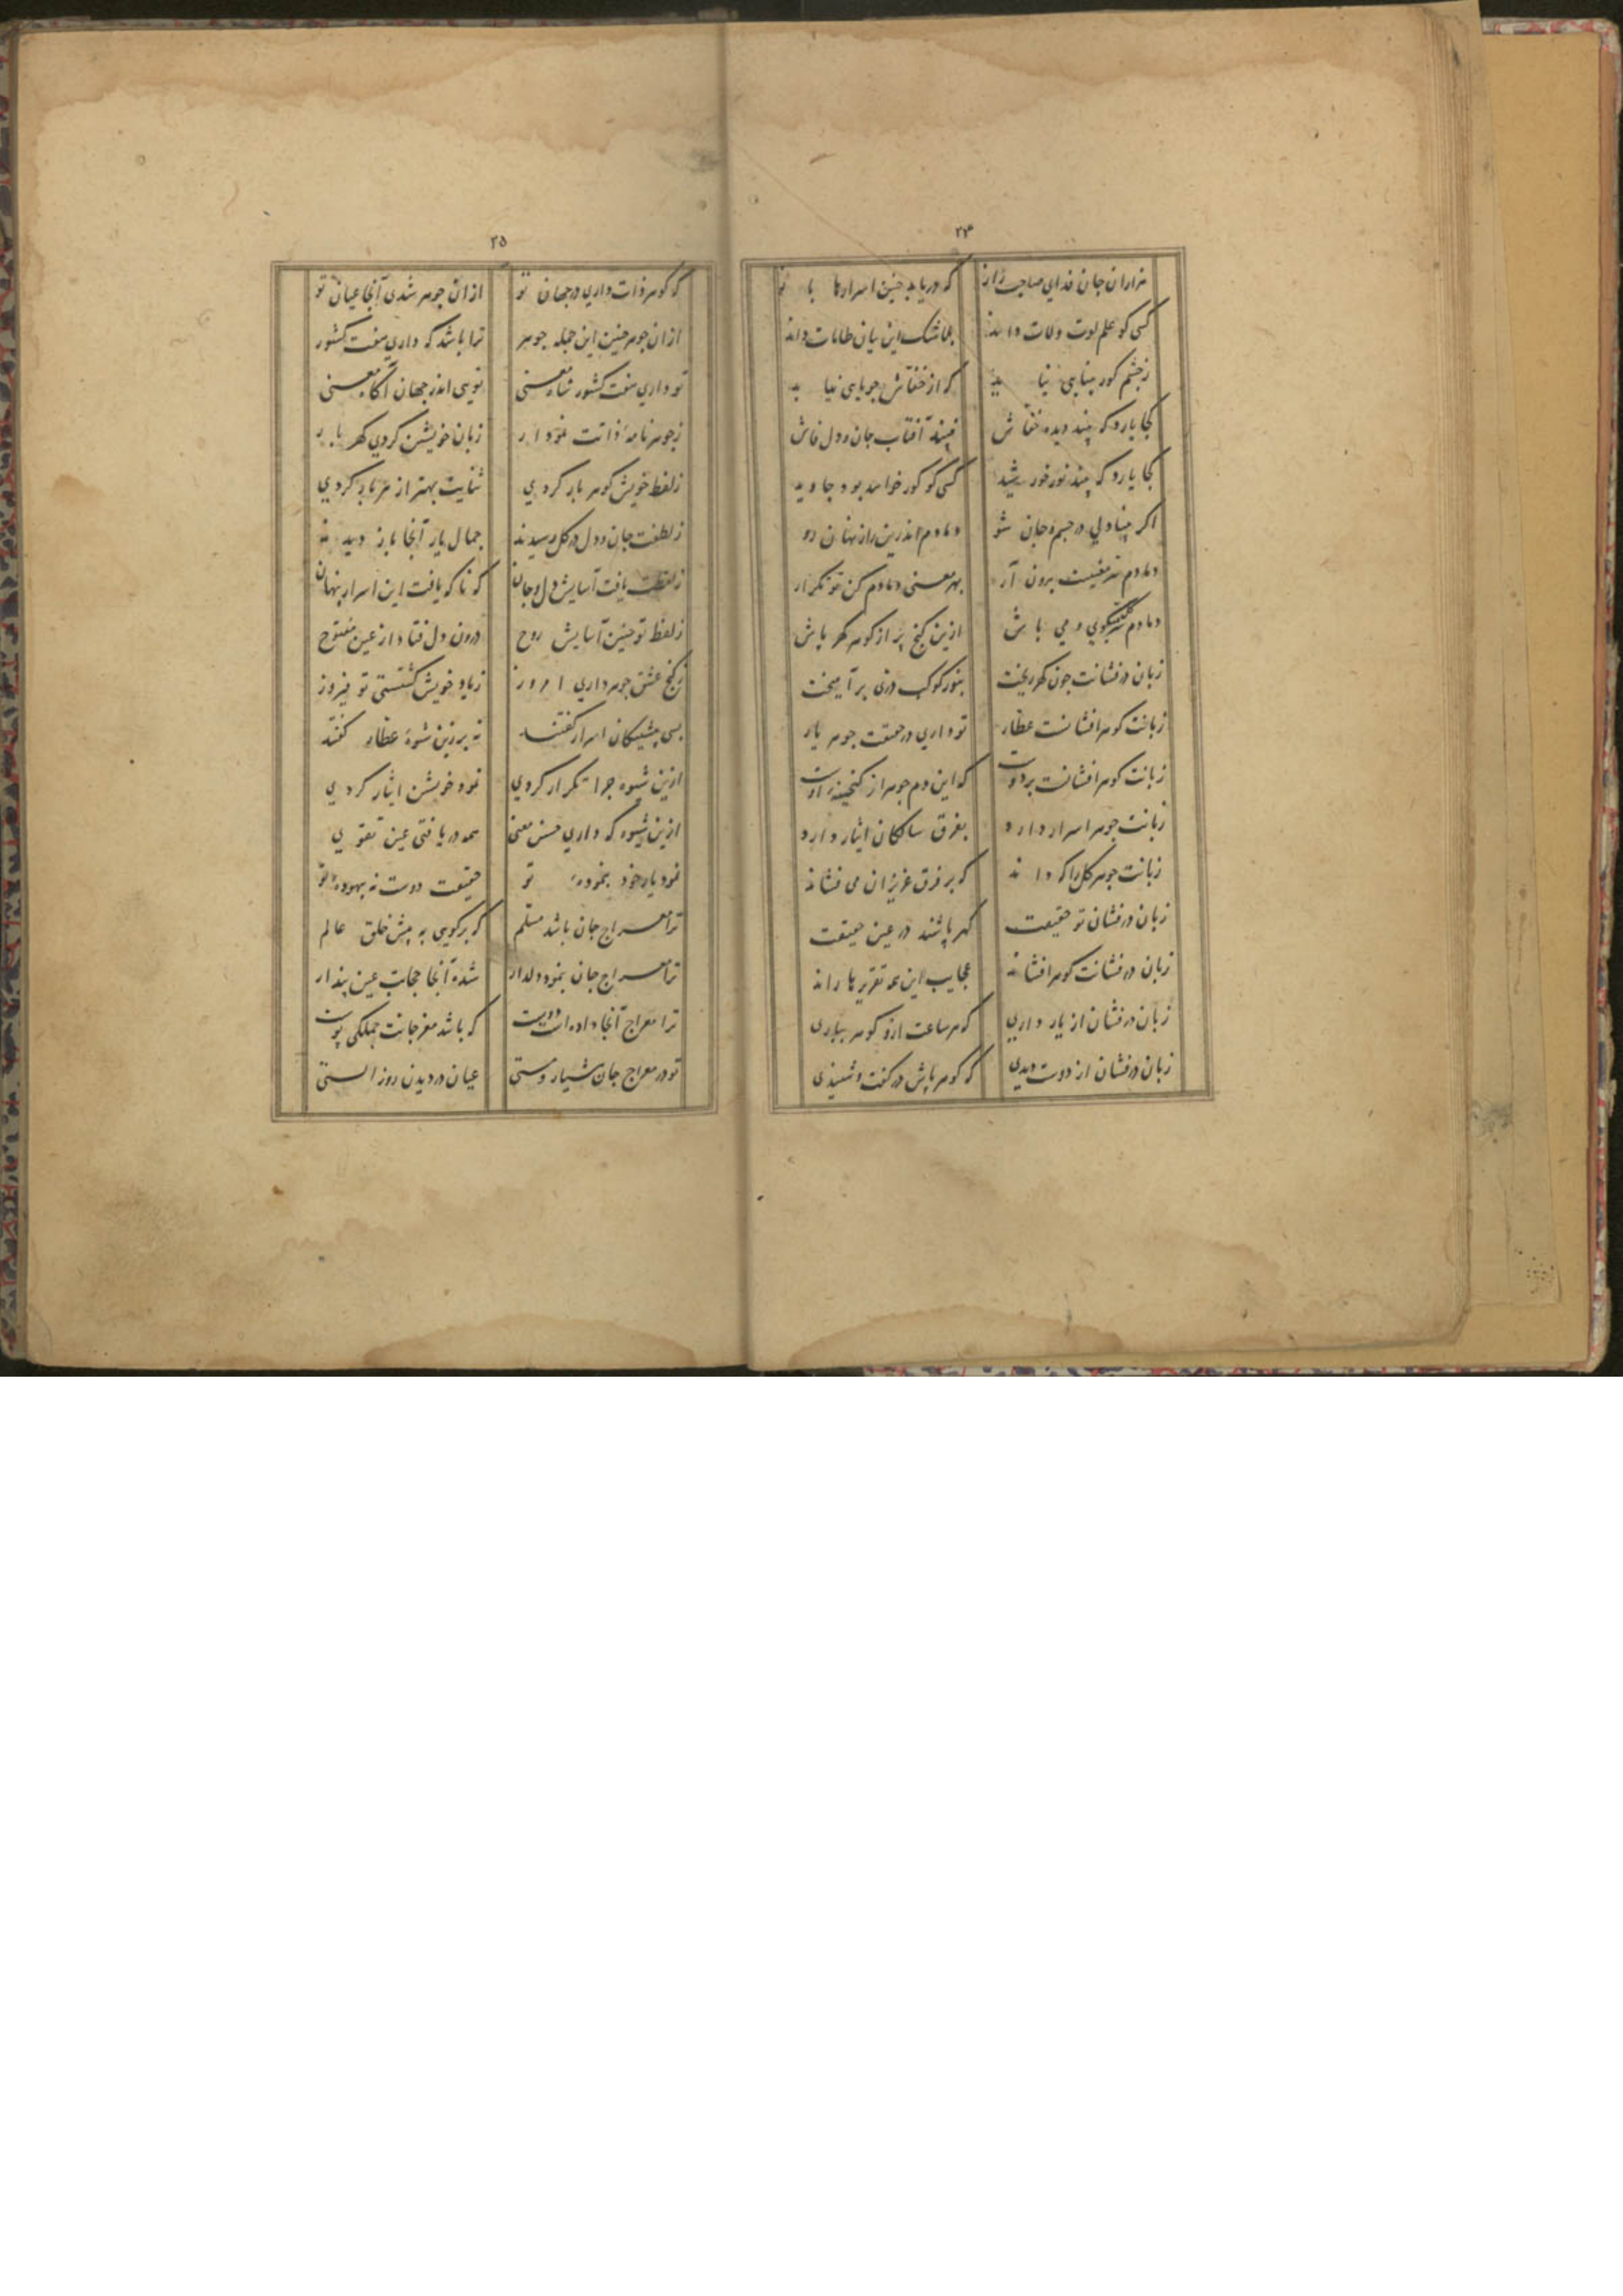 ۲۴
هزاران جان فدای صاحب راز که دریابد چنین اسرارها باز
کسی کو علم لوت ولات داند بلاشک این بیان طامات داند
زچشم کور بینایی نیاید که از خفاش جویایی نیاید
کجا یارد که بیند دیده خفاش نبیند آفتاب جان ودل فاش
کجا یارد که بیند نور خورشید کسی کو کور خواهد بود جاوید
اکر بینا دلی در جسم وجان شو دمادم اندرین راز نهان رو
دمادم سر معنیت برون آر بهر معنی دمادم کن تو تکرار
دمادم میکوی ومی باش ازین کنج پر از کوهر کهر باش
زبان درفشانت چون کهر ریخت بنور کوکب دری برآمیخت
زبانت کوهر افشانست عطار تو داری در حقیقت جوهر یار
زبانت کوهر افشانست بر دوست که این دم جوهر از کنجینه اوست
زبانت جوهر اسرار دارد بفرق سالکان ایثار دارد
زبانت جوهر کل راکه داند که بر فرق عزیزان می فشاند
زبان درفشان تو حقیقت کهر پاشند در عین حقیقت
زبان درفشانت کوهر افشاند عجایب این همه تقریرها راند
زبان درفشان از یار داری که هر ساعت ازو کوهر بباری
زبان درفشان از دوست دیدی که کوهر پاش در کفت وشنیدی
۲۵
که کوهر ذات داری در جهان تو ازان جوهر شدی آنجا عیان تو
ازان جوهر چنین این جمله جوهر ترا باشد که داری هفت کشور
تو داری هفت کشور شاه معنی تویی اندر جهان آکاه معنی
زجوهر نامهٔ ذاتت نمودار زبان خویشتن کردی کهر بار
زلفظ خویش کوهر بار کردی ثنایت بهتر از هر بار کردی
زلطفت جان ودل در کل رسیدند جمال یار آنجا باز دیدند
زلفظت یافت آسایش دل وجان که ناکه یافت این اسرار پنهان
زلفظ تو چنین آسایش روح درون دل فتاد از عین مفتوح
زکنج عشق جوهر داری امروز زیاد خویش کشتستی تو فیروز
بسی پیشینکان اسرار کفتند نه برزین شیوهٔ عطار کفتند
ازین شیوه چرا تکرار کردی نمود خویشتن ایثار کردی
ازین شیوه که داری حسن معنی همه دریافتی عین تقوی
نمود یار خود بنمودهٔ تو حقیقت دوست نه بیهودهٔ تو
ترا معراج جان باشد مسلم که برکویی به پیش خلق عالم
ترا معراج جان بنمود دلدار شده آنجا حجابت عین پندار
ترا معراج آنجا داده است دوست که باشد مغز جانت جملکی پوست
تو در معراج جان هشیار ومستی عیان در دیدن روز الستی